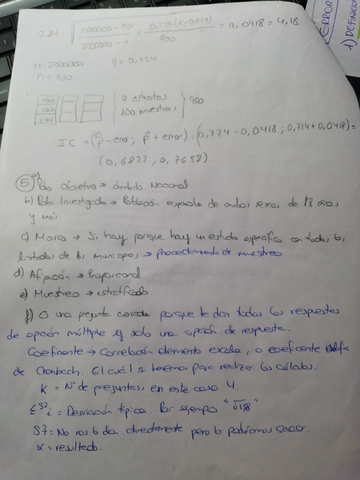 2000000 - 900
0,724
= 0,0418 = 4,18
2000000 - 1
900
N: 2000000
100
100
100
9 estratos
100 muestras
900
IC = (p̂ - error; p̂ + error) = (0,724 - 0,0418; 0,724 + 0,0418) =
(0,6822, 0,7658).
⑤ a) Pob Objetivo → ámbito Nacional.
b) Pob Investigada → Población española de ambos sexos de 18 años
y más.
c) Marco → Si hay porque hay un estudio específico con todos los
listados de los municipios → procedimiento de muestreo
d) Afijación → Proporcional
e) Muestreo → estratificado
f) O una pregunta cerrada porque te dan todas las respuestas
de opción múltiple y solo una opción de respuesta.
Coeficiente → Correlación elemento escala, o coeficiente alfa
de Cronbach. El cuál si tenemos para realizar los cálculos.
K = Nº de preguntas, en este caso 4.
= Desviación típica. Por ejemplo
= No nos lo da directamente pero lo podríamos sacar.
α = resultado.
ERROR
1) DEFINICIÓN